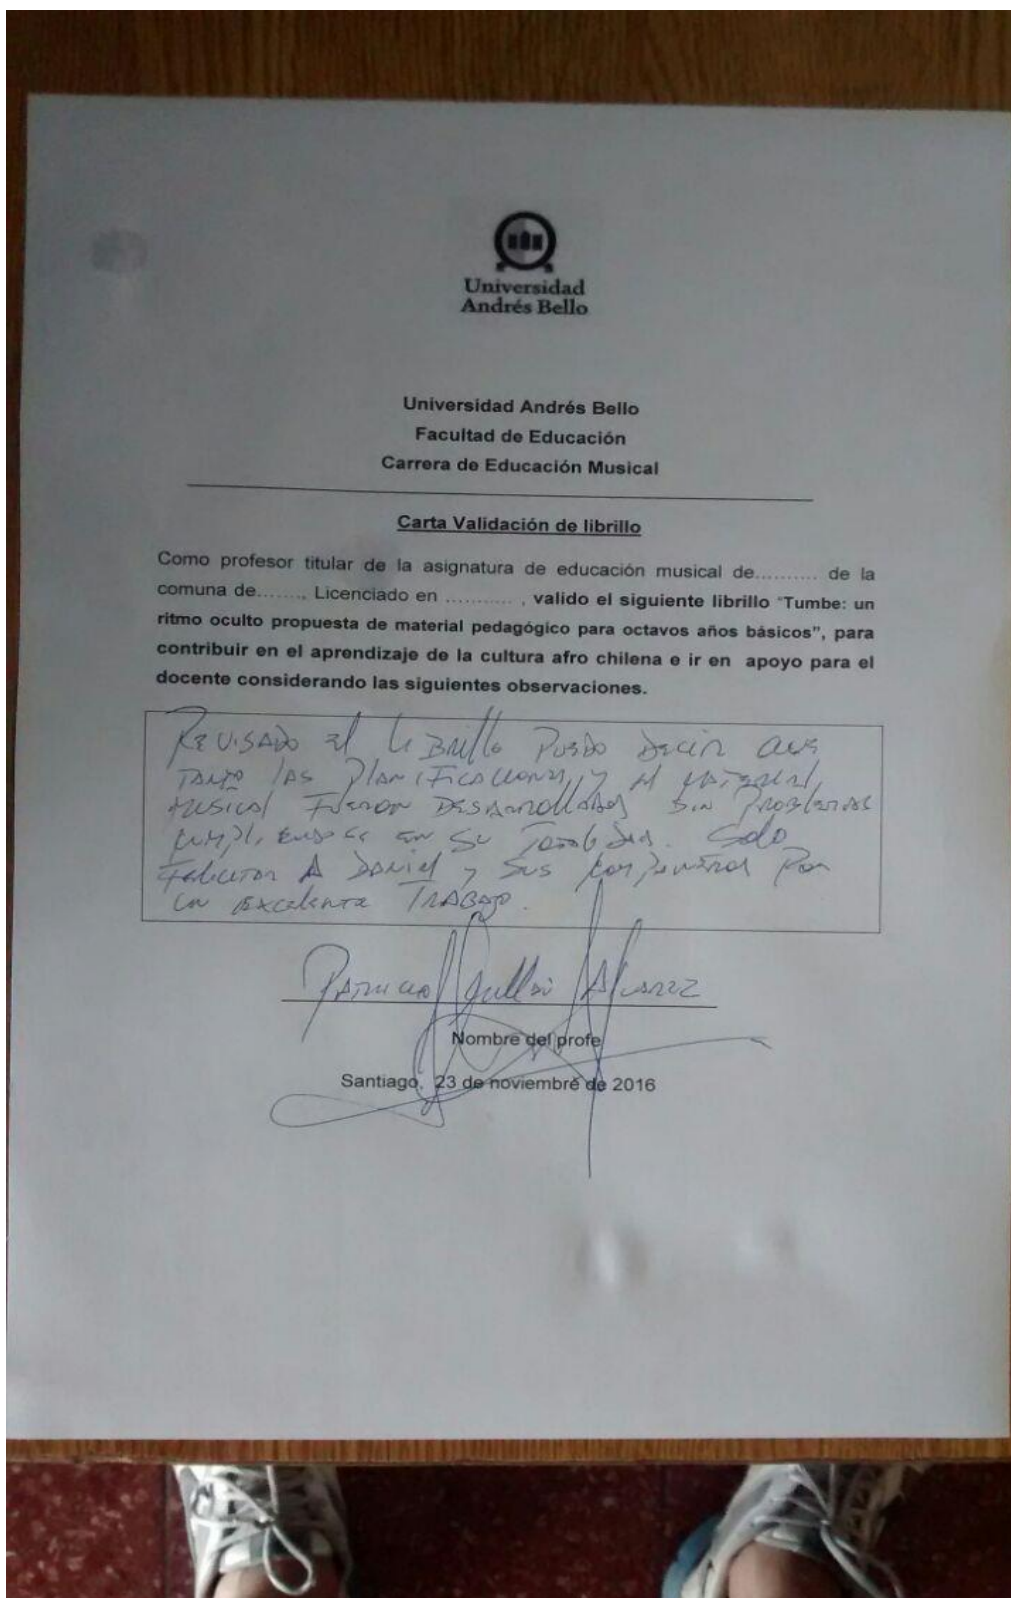 Universidad
Andrés Bello
Universidad Andrés Bello
Facultad de Educación
Carrera de Educación Musical
Carta Validación de librillo
Como profesor titular de la asignatura de educación musical de.......... de la
comuna de......., Licenciado en ........... , valido el siguiente librillo “Tumbe: un
ritmo oculto propuesta de material pedagógico para octavos años básicos”, para
contribuir en el aprendizaje de la cultura afro chilena e ir en apoyo para el
docente considerando las siguientes observaciones.
REVISADO el LiBRillo PUEDO DeciR QUE
TANTO lAS PlANiFiCACiONES, y el MATERIAL
MUSICAl FUERON DESARROllADAS SiN PROBlEMAS
CUMPliENDOSE EN SU TOTALiDAD. Solo
FeliciTAR A DANiel y SUS COMPAÑEROS POR
UN EXCelENTE TRABAJO.
PATRICIO Guillén AlvAREZ
Nombre del profe
Santiago, 23 de noviembre de 2016